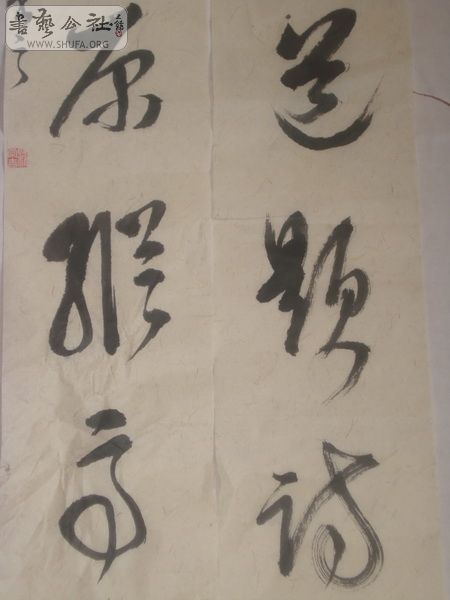 書藝公社
WWW.SHUFA.ORG
道題詩
原縱